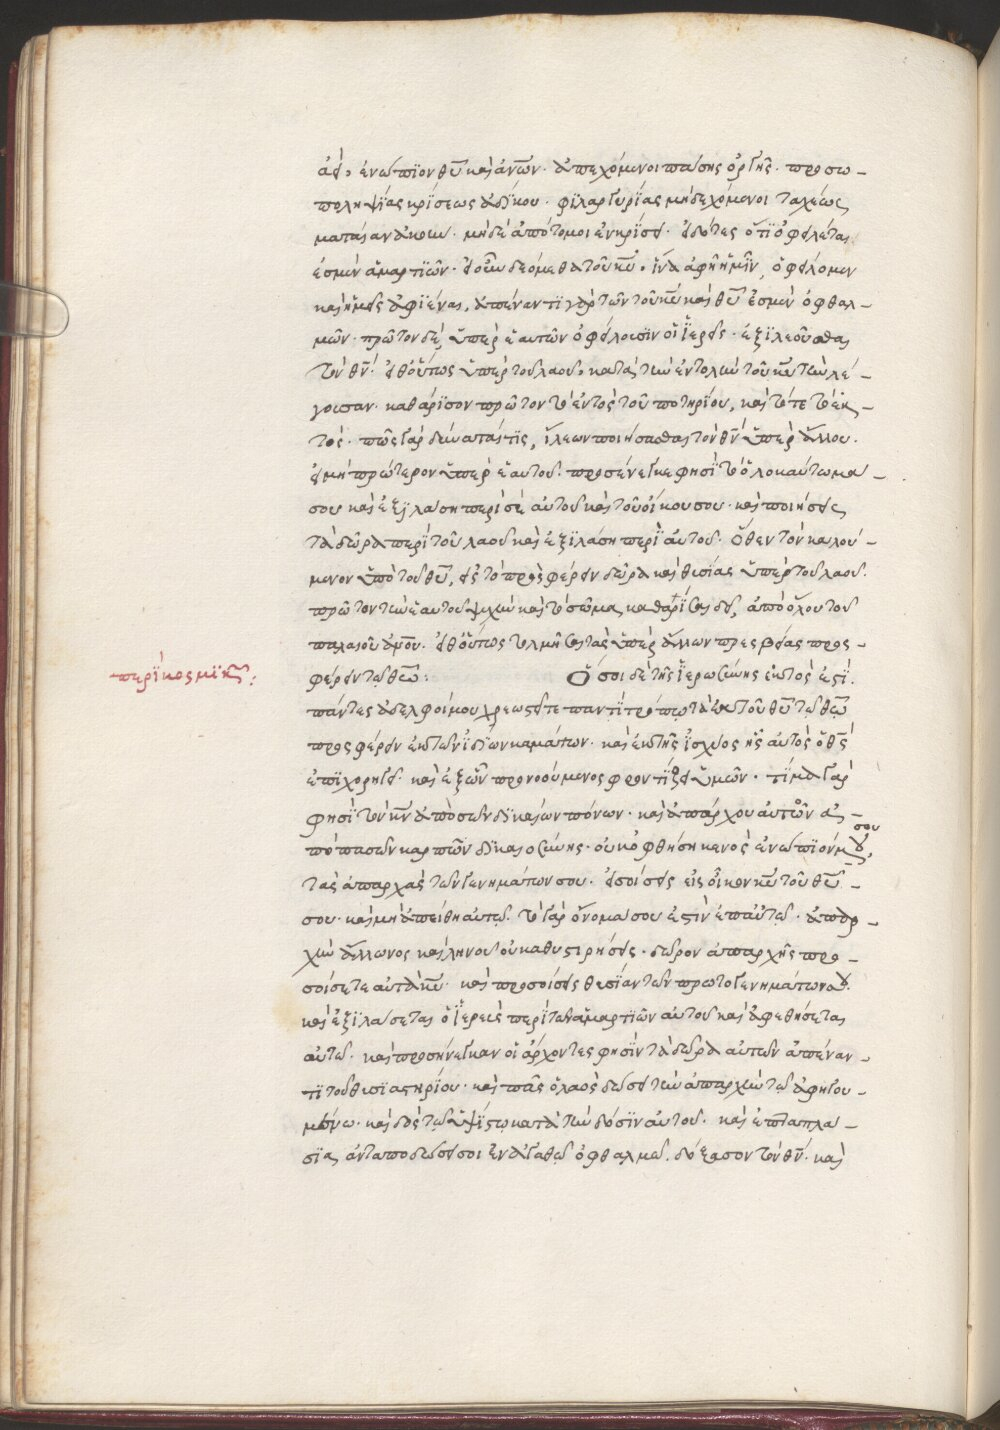 ἀεὶ ἐνώπϊον θῦ καὶ ἀνῶν· ἀπεχόμενοι πάσης ὀργῆς· προσω–
πολη ψΐας κρΐσεως ἀδΐκου· φϊλαργυρΐας μὴ δεχόμενοι ταχέως
ματαίαν ἀκοὴν· μὴδὲ ἀπότομοι ἐν κρΐσει· εἰδότες ὅτϊ ὀφειλέται
ἐσμὲν ἁμαρτϊῶν· εἰ οὖν δεόμεθα τοῦ κῦ· ἵνα ἀφῇ ἡμῖν, ὀφείλομεν
καὶ ἡμεῖς ἀφϊέναι, ἀπέναντϊ γὰρ τῶν τοῦ κῦ καὶ θῦ ἐσμὲν ὀφθαλ–
μῶν· πρῶτον δὲ, ὑπὲρ ἑαυτῶν ὀφείλουσϊν οἱ ἱερεῖς· ἐξϊλεοῦσθαι
τὸν θν· εἶθ οὕτως ὑπὲρ τοῦ λαοῦ· κατὰ τὴν ἐντολὴν τοῦ κῦ τὴν λέ–
γουσαν· καθάρϊσον πρῶτον τὸ ἐντὸς τοῦ ποτηρΐου, καὶ τότε τὸ ἐκ–
τὸς· πῶς γὰρ δύναταί τϊς, ἵλεων ποιήσασθαι τὸν θν ὑπὲρ ἄλλου·
εἰ μὴ πρότερον ὑπὲρ ἑαυτοῦ· προσένεγκε φησὶ τὸ ὁλοκαύτωμα–
σου καὶ ἐξϊλάσῃ περὶ σὲ αὐτοῦ καὶ τοῦ οἴκου σου· καὶ ποιήσεις
τὰ δῶρα περὶ τοῦ λαοῦ καὶ ἐξϊλάσῃ περὶ αὐτοῦ· Ὅθεν τὸν καλού–
μενον ὑπὸ τοῦ θῦ, εἰς τὸ προσφέρειν δῶρα καὶ θυσίας ὑπὲρ τοῦ λαοῦ·
πρῶτον τὴν ἑαυτοῦ ψυχὴν καὶ τὸ σῶμα καθαρΐσαι δεῖ, ἀπὸ ὅλου τοῦ
παλαιοῦ ἀνοῦ· εἶθ οὕτως τολμῆσαι τὰς ὑπὲρ ἄλλων πρεσβείας προσ–
φέρειν τῷ θεῷ: Ὅσοι δὲ τῆς ἱερωσύνης ἐκτὸς ἐστὲ.
περὶ κοσμϊκῶν:
πάντες ἀδελφοί μου χρεωστεῖτε παντϊ τρόπῳ τὰ ἐκ τοῦ θῦ τῷ θεῷ
προσφέρειν ἐκ τῶν ἰδΐων καμάτων· καὶ ἐκ τῆς ἰσχύος ἧς αὐτὸς ὁ θς
ἐπϊχορηγεῖ· καὶ ἐξ ὧν προνοούμενος φροντΐζει ὑμῶν· τΐμα γὰρ
φησὶ τὸν κν ἀπὸ σῶν δϊκαίων πόνων· καὶ ἀπάρχου αὐτῶν ἀ–
πὸ πασῶν καρπῶν δϊκαιοσύνης· οὐκ ὀφθήσῃ κενὸς ἐνώπϊόν μου
τὰς ἀπαρχὰς τῶν γενημάτων σου· εἰσοίσεις εἰς οἶκον κῦ τοῦ θῦ–
σου· καὶ μὴ ἀπείθη αὐτῷ· τὸ γὰρ ὄνομα σου ἐστὶν ἐπαὐτῷ· ἀπαρ–
χὴν ἅλωνος καὶ ληνοῦ οὐ καθυστερήσεις· δῶρον ἀπαρχῆς προ–
σοίσετε αὐτὰ κῷ· καὶ προσοίσεις θυσίαν τῶν πρωτογενημάτων
καὶ ἐξϊλάσεται ὁ ἱερεὺς περὶ τῶν ἁμαρτϊῶν αὐτοῦ καὶ ἀφεθήσεται
αὐτῷ· καὶ προσήνεγκαν οἱ ἄρχοντες φησὶν τὰ δῶρα αὐτῶν ἀπέναν–
τϊ τοῦ θυσϊαστηρΐου· καὶ πᾶς ὁ λαὸς δώσει τὴν ἀπαρχὴν τῷ ἀφηγου–
μένω· καὶ δὸς τῷ ὑψΐστῳ κατὰ τὴν δόσϊν αὐτοῦ· καὶ ἑπταπλα–
σϊα ἀνταποδώσει σοι ἐν ἀγαθῷ ὀφθαλμῷ· δόξασον τὸν θν· καὶ